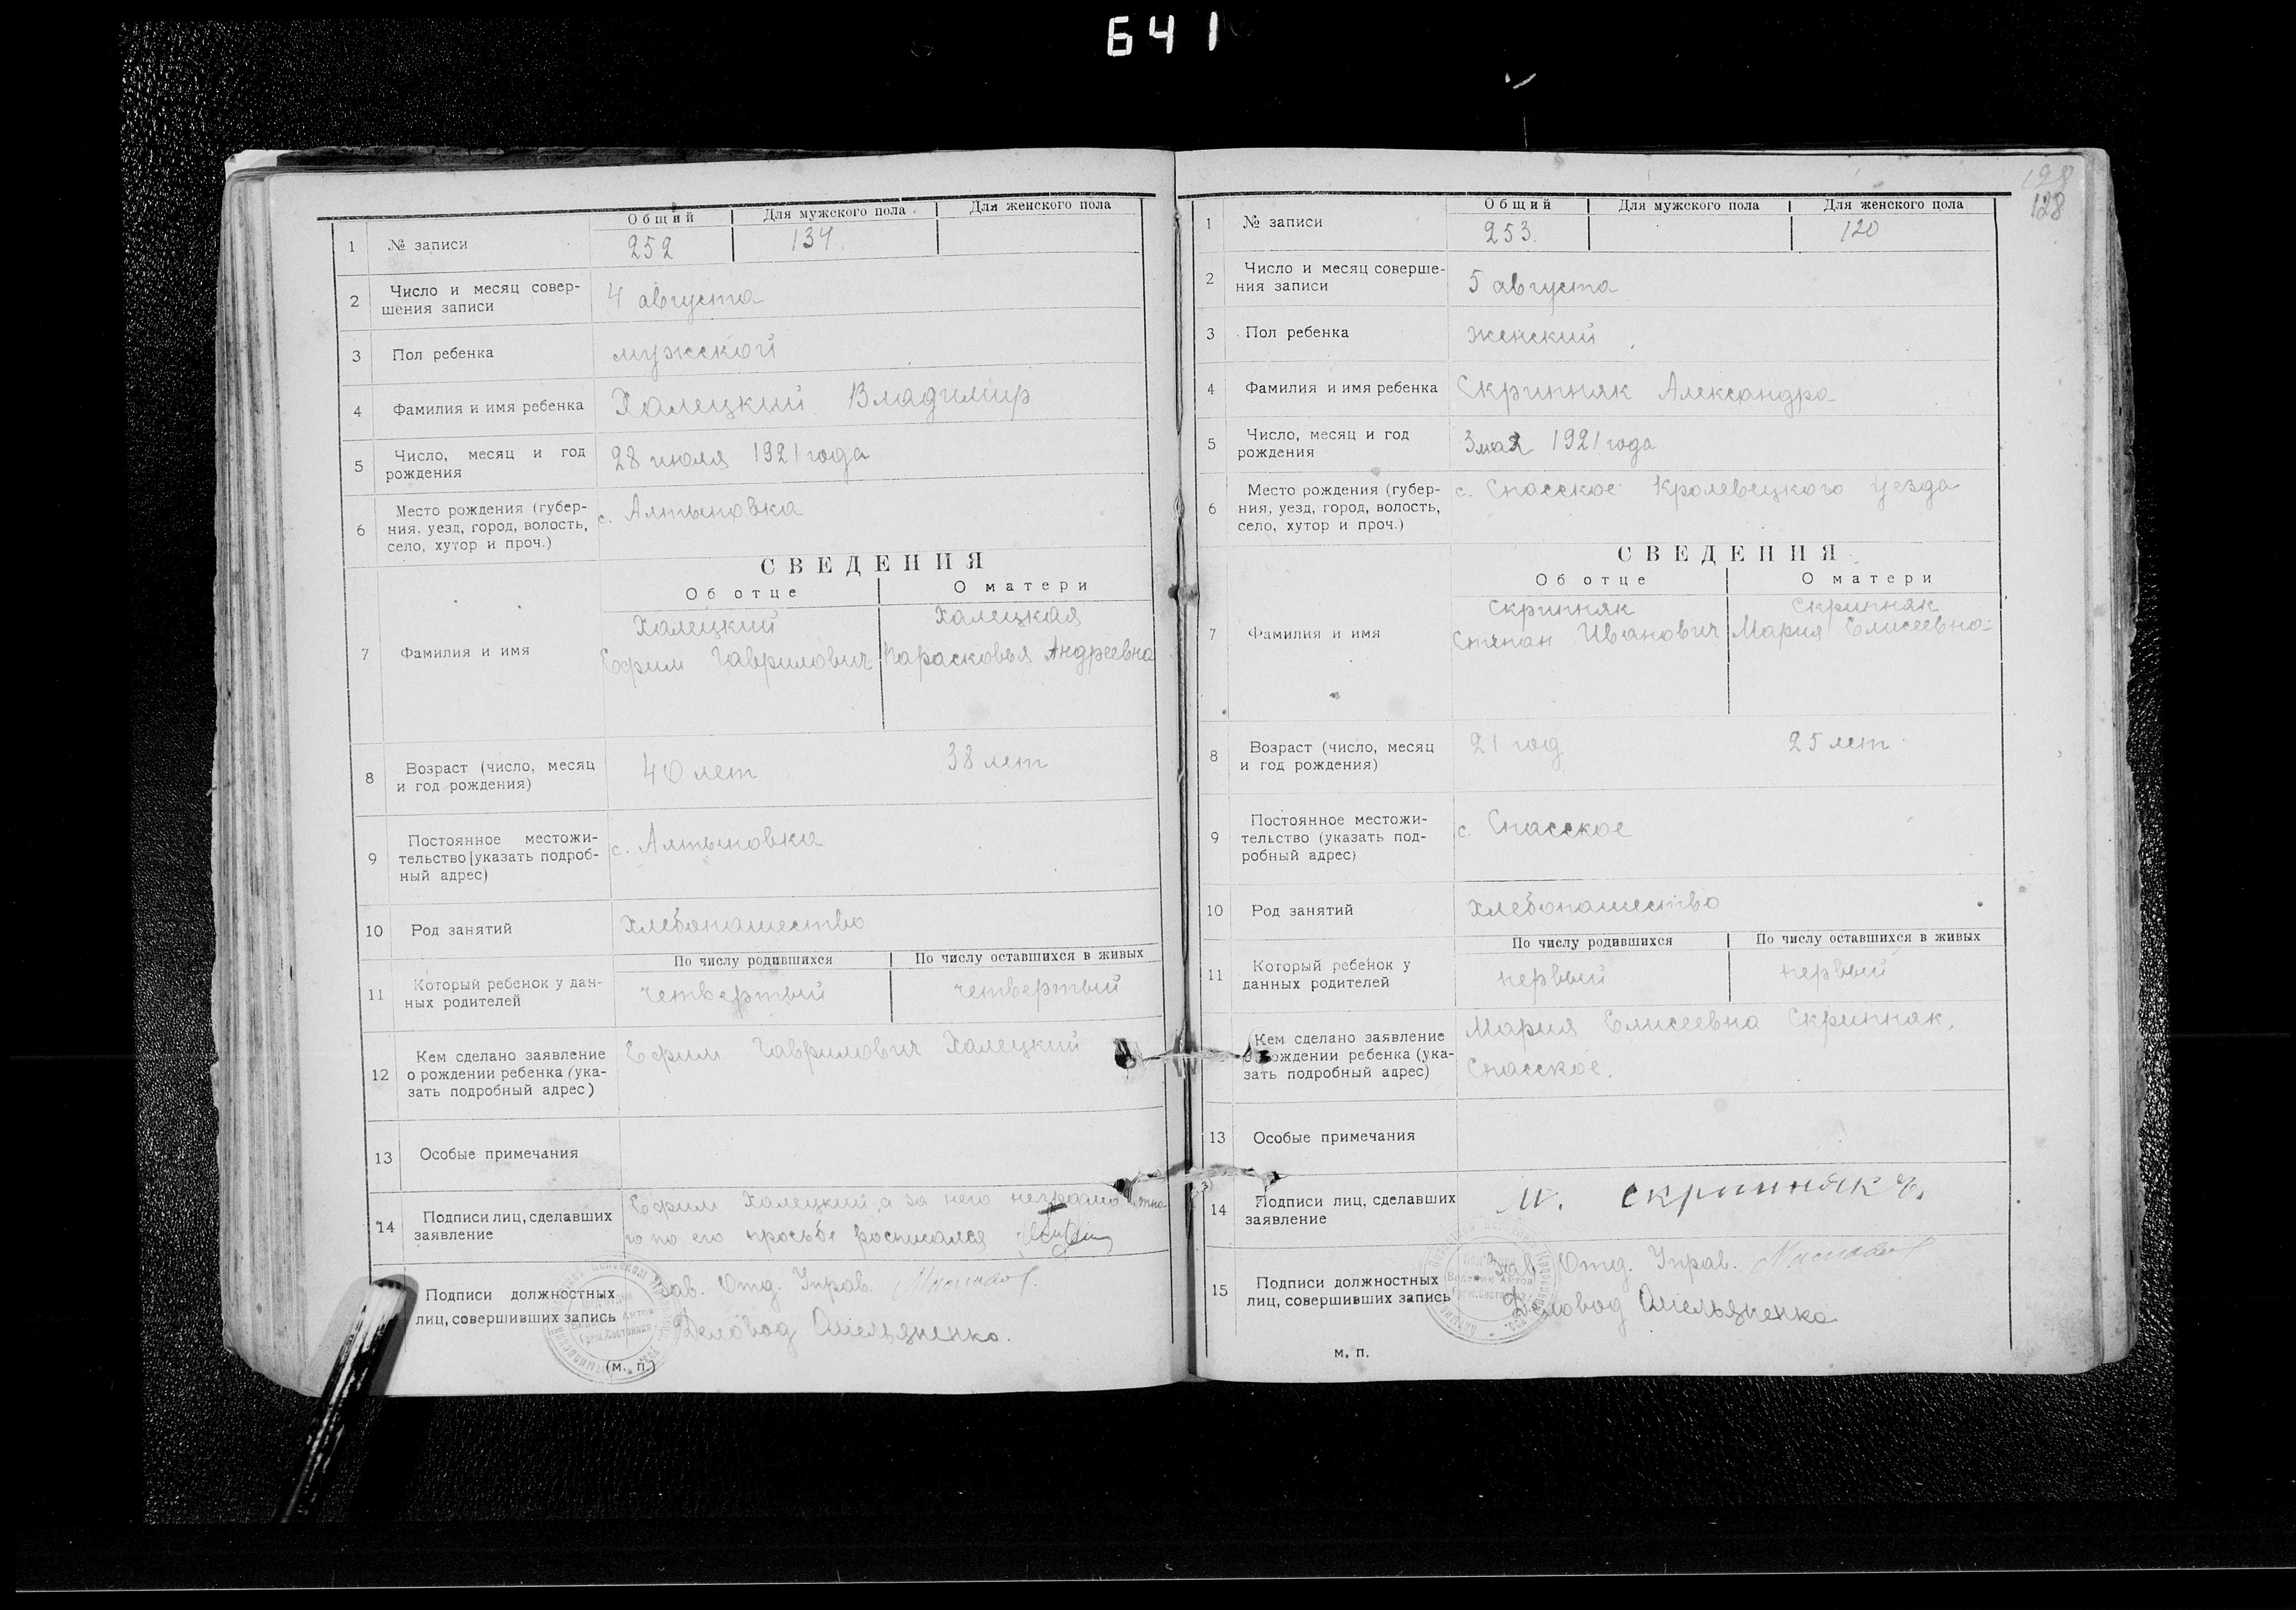 641
Общий Для мужского пола Для женского пола
1 № записи 252 134
2 Число и месяц совер-
шения записи
4 августа
3 Пол ребенка мужской
4 Фамилия и имя ребенка Халецкий Владимир
5 Число, месяц и год
рождения
28 июля 1921 года
6 Место рождения (губер-
ния, уезд, город, волость,
село, хутор и проч.)
с. Алтыновка
СВЕДЕНИЯ
Об отце О матери
7 Фамилия и имя
Халецкий Халецкая
Ефим Гаврилович Парасковья Андреевна
8 Возраст (число, месяц
и год рождения)
40 лет 38 лет
9 Постоянное местожи-
тельство [указать подроб-
ный адрес)
с. Алтыновка
10 Род занятий Хлебопашество
По числу родившихся По числу оставшихся в живых
11 Который ребенок у дан-
ных родителей
четвертый четвертый
12 Кем сделано заявление
о рождении ребенка (ука-
зать подробный адрес)
Ефим Гаврилович Халецкий
13 Особые примечания
14 Подписи лиц, сделавших
заявление
Ефим Халецкий, а за него неграмотно-
го по его просьбе росписался
Подписи должностных
лиц, совершивших запись
Зав. Отд. Управ.
Деловод Омельяненко.
(м. п.)
128
128
Общий Для мужского пола Для женского пола
1 № записи 253. 120
2 Число и месяц соверше-
ния записи
5 августа
3 Пол ребенка женский
4 Фамилия и имя ребенка Скрипняк Александра
5 Число, месяц и год
рождения
3 мая 1921 года
6 Место рождения (губер-
ния, уезд, город, волость,
село, хутор и проч.)
с. Спасское Кролевецкого уезда
СВЕДЕНИЯ
Об отце О матери
7 Фамилия и имя
Скрипняк Скрипняк
Степан Иванович Мария Елисеевна
8 Возраст (число, месяц
и год рождения)
21 год 25 лет
9 Постоянное местожи-
тельство (указать под-
робный адрес)
с. Спасское
10 Род занятий хлебопашество
По числу родившихся По числу оставшихся в живых
11 Который ребенок у
данных родителей
первый первый
Кем сделано заявление
о рождении ребенка (ука-
зать подробный адрес)
Мария Елисеевна Скрипняк,
Спасское.
13 Особые примечания
14 Подписи лиц, сделавших
заявление
М. Скрипняк
15 Подписи должностных
лиц, совершивших запись
Зав. Отд. Управ.
Деловод Омельяненко
м. п.